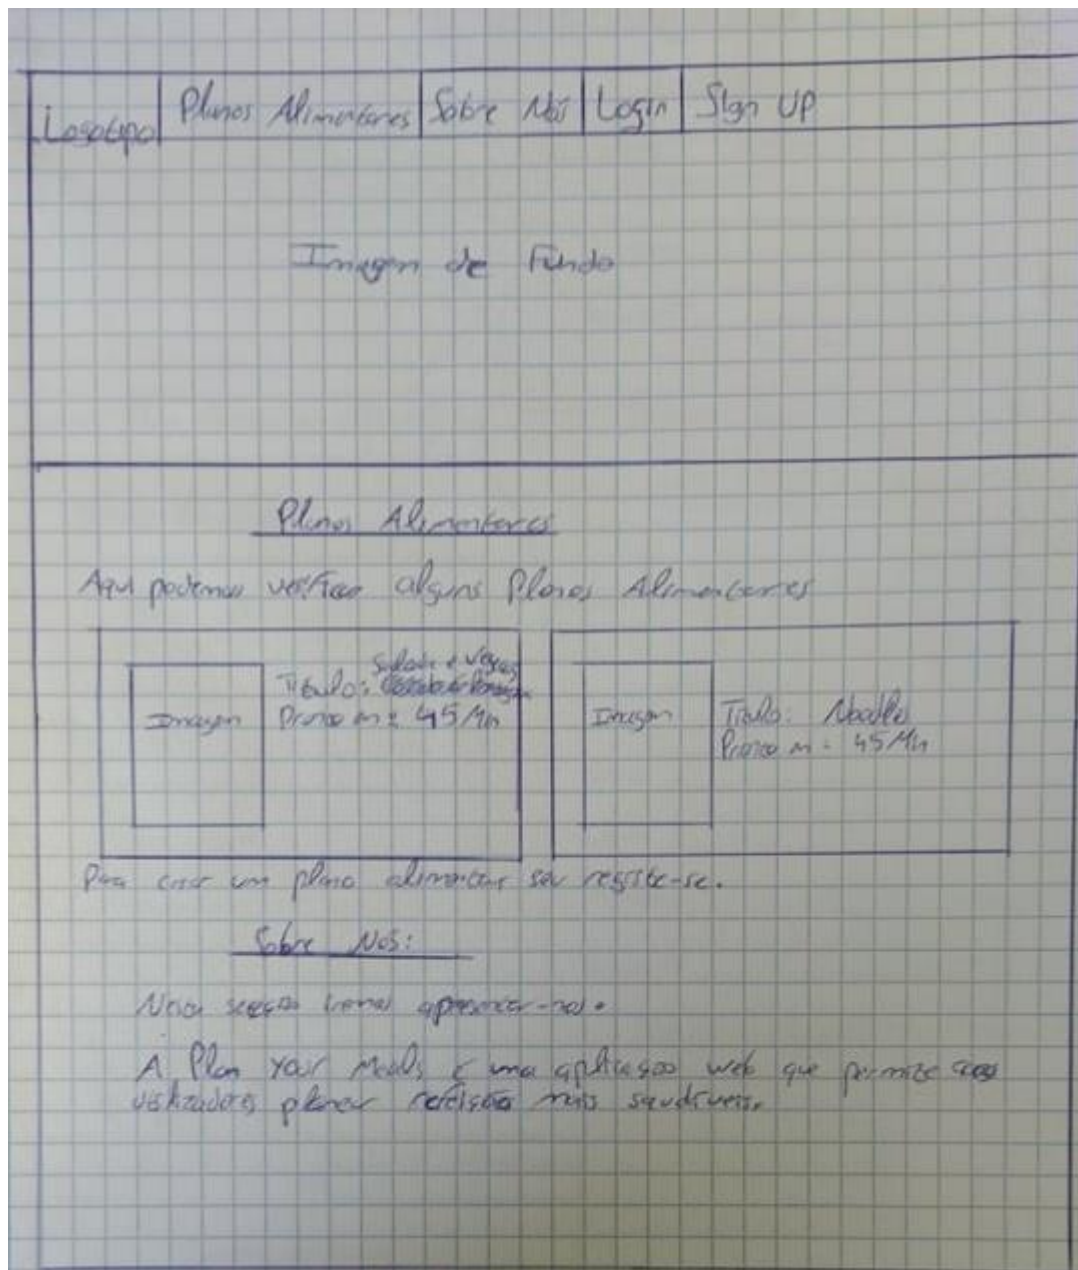 Logotipo Planos Alimentares Sobre Nós Login Sign UP
Imagem de Fundo
Planos Alimentares
Aqui podemos verificar alguns Planos Alimentares
Salada e
Imagem Titulo:
Pronto em: 45 Min
Imagem Titulo: Noodles
Pronto em: 45 Min
Para criar um plano alimentar seu registe-se.
Sobre Nós:
secção apresentar-nos.
A Plan Your Meals é uma aplicação web que permite aos
utilizadores planear refeições mais saudáveis.